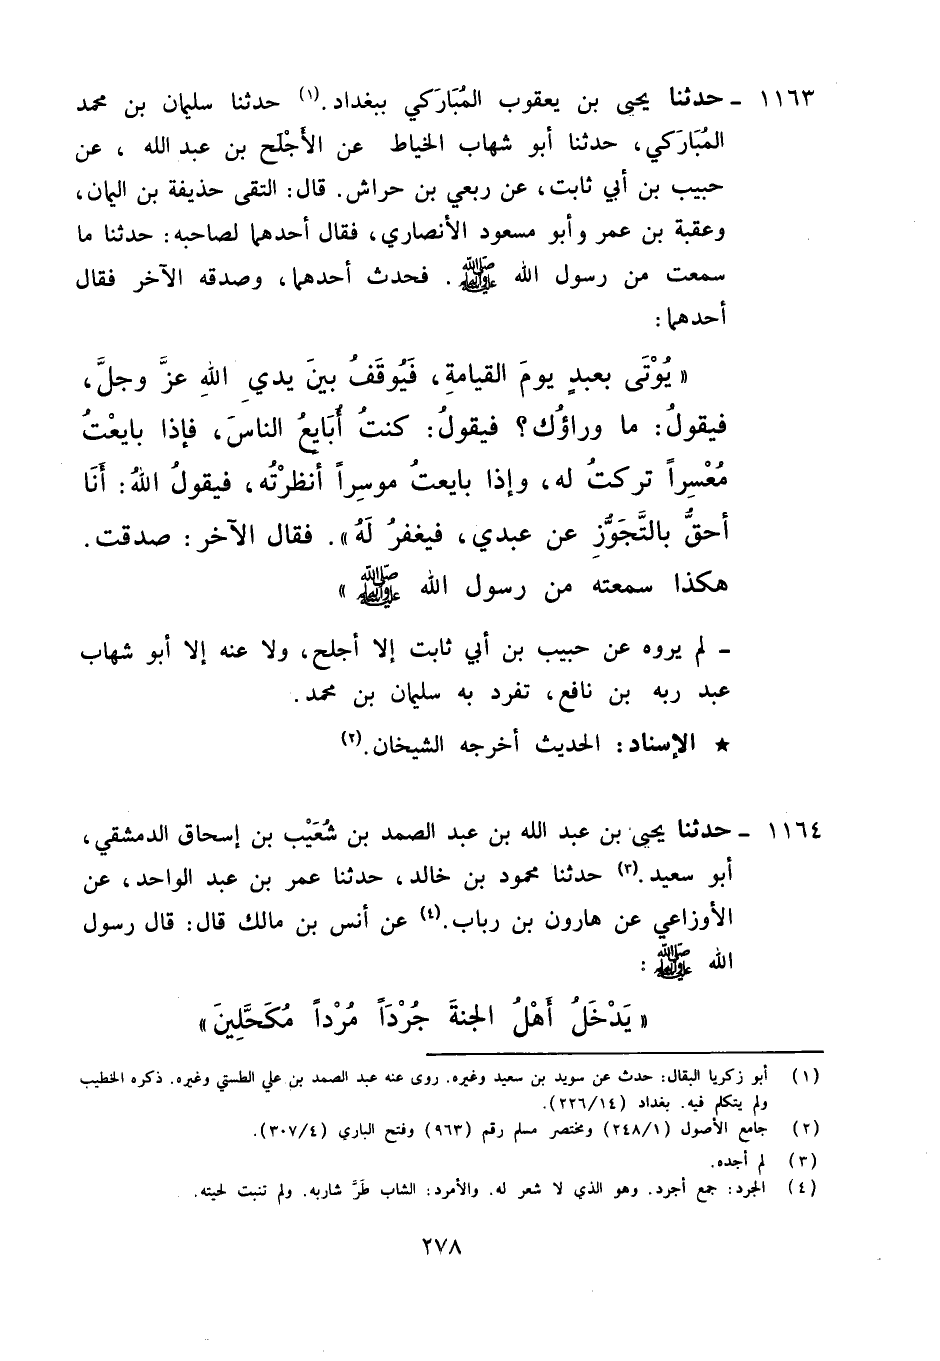 ١١٦٣ ـ حدثنا يحيى بن يعقوب المُبَارَكي ببغداد.(١) حدثنا سليمان بن محمد
المُبَارَكي، حدثنا أبو شهاب الخياط عن الأَجْلَح بن عبد الله ، عن
حبيب بن أبي ثابت، عن ربعي بن حراش. قال: التقى حذيفة بن اليمان،
وعقبة بن عمر وأبو مسعود الأنصاري، فقال أحدهما لصاحبه: حدثنا ما
سمعت من رسول الله ﷺ . فحدث أحدهما، وصدقه الآخر فقال
أحدهما:
« يُوْتَى بعبدٍ يومَ القيامةِ، فَيُوقَفُ بينَ يديِ اللهِ عزَّ وجلَّ،
فيقولُ: ما وراؤُك؟ فيقولُ: كنتُ أُبَايعُ الناسَ، فإذا بايعْتُ
مُعْسِراً تركتُ له، وإذا بايعتُ موسِراً أنظرْتُه، فيقولُ اللهُ: أَنَا
أحقُّ بالتَّجَوُّزِ عن عبدي، فيغفرُ لَهُ». فقال الآخر: صدقت.
هكذا سمعته من رسول الله ﷺ »
ـ لم يروه عن حبيب بن أبي ثابت إلا أجلح، ولا عنه إلا أبو شهاب
عبد ربه بن نافع، تفرد به سليمان بن محمد.
★ الإسناد: الحديث أخرجه الشيخان.(٢)
١١٦٤ ـ حدثنا يحيى بن عبد الله بن عبد الصمد بن شُعَيْب بن إسحاق الدمشقي،
أبو سعيد.(٣) حدثنا محمود بن خالد، حدثنا عمر بن عبد الواحد، عن
الأوزاعي عن هارون بن رباب.(٤) عن أنس بن مالك قال: قال رسول
الله ﷺ :
« يَدْخَلُ أَهْلُ الجنةَ جُرْدَاً مُرْداً مُكَحَّلِينَ»
(١) أبو زكريا البقال: حدث عن سويد بن سعيد وغيره. روى عنه عبد الصمد بن علي الطستي وغيره. ذكره الخطيب
ولم يتكلم فيه. بغداد (٢٢٦/١٤).
(٢) جامع الأصول (٢٤٨/١) ومختصر مسلم رقم (٩٦٣) وفتح الباري (٣٠٧/٤).
(٣) لم أجده.
(٤) الجرد: جمع أجرد. وهو الذي لا شعر له. والأمرد: الشاب طَرَّ شاربه. ولم تنبت لحيته.
٢٧٨